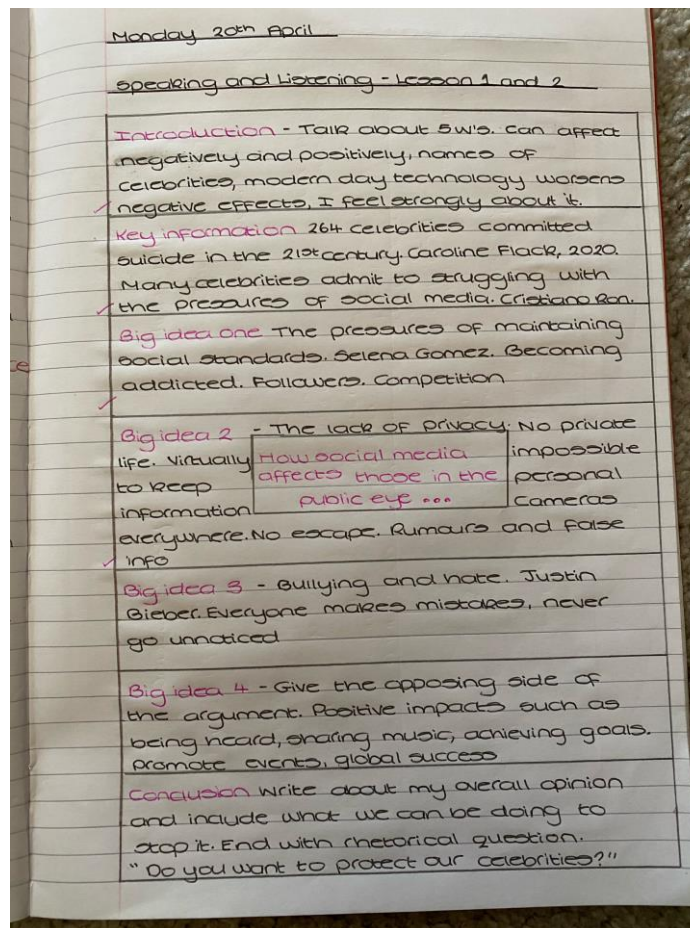 Monday 20th April
Speaking and Listening - Lesson 1 and 2
Introduction - Talk about 5W's. Can affect
negatively and positively, names of
celebrities, modern day technology worsens
negative effects, I feel strongly about it.
Key information 264 celebrities committed
suicide in the 21st century. Caroline Flack, 2020.
Many celebrities admit to struggling with
the pressures of social media. Cristiano Ron.
Big idea one The pressures of maintaining
social standards. Selena Gomez. Becoming
addicted. Followers. Competition
Big idea 2 - The lack of privacy. No private
life. Virtually impossible
to keep personal
information cameras
everywhere. No escape. Rumours and false
info
How social media
affects those in the
public eye ...
Big idea 3 - Bullying and hate. Justin
Bieber. Everyone makes mistakes, never
go unnoticed
Big idea 4 - Give the opposing side of
the argument. Positive impacts such as
being heard, sharing music, achieving goals.
promote events, global success
Conclusion Write about my overall opinion
and include what we can be doing to
stop it. End with rhetorical question.
"Do you want to protect our celebrities?"